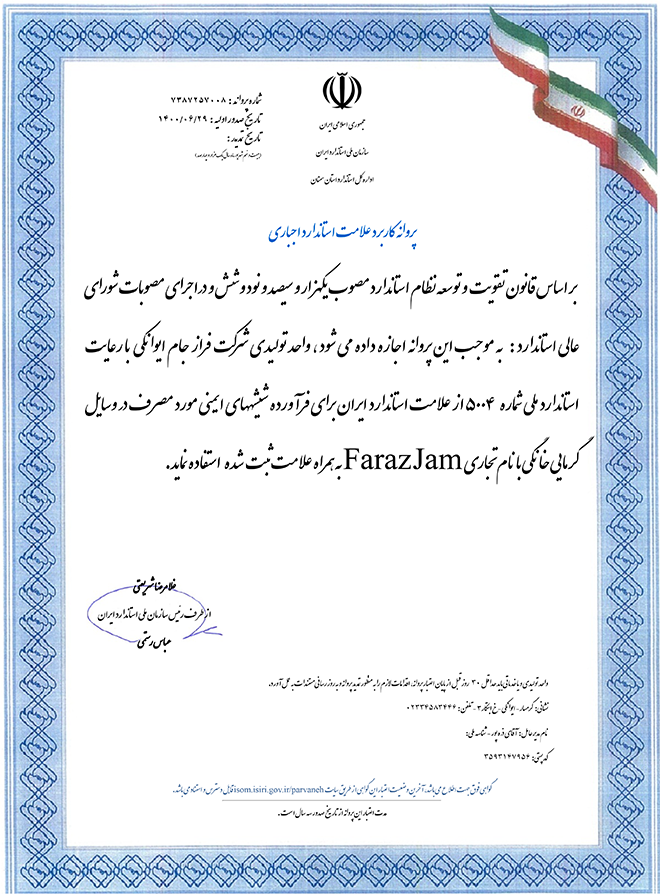 شماره پروانه: ۷۳۸۷۲۵۷۰۰۸
تاریخ صدور اولیه: ۱۴۰۰/۰۶/۲۹
تاریخ تمدید:
(بیست و نهم شهریور سال یک هزار و چهارصد)
جمهوری اسلامی ایران
سازمان ملی استاندارد ایران
اداره کل استاندارد استان سمنان
پروانه کاربرد علامت استاندارد اجباری
بر اساس قانون تقویت و توسعه نظام استاندارد مصوب یکهزار و سیصد و نود و شش و در اجرای مصوبات شورای
عالی استاندارد: به موجب این پروانه اجازه داده می شود، واحد تولیدی شرکت فراز جام ایوانکی با رعایت
استاندارد ملی شماره ۵۰۰۴ از علامت استاندارد ایران برای فرآورده شیشههای ایمنی مورد مصرف در وسایل
گرمایی خانگی با نام تجاری FarazJam به همراه علامت ثبت شده استفاده نماید.
غلامرضا شریعتی
از طرف رئیس سازمان ملی استاندارد ایران
عباس رستمی
واحد تولیدی و یا خدماتی باید حداقل ۳۰ روز قبل از پایان اعتبار پروانه، اقدامات لازم را به منظور تمدید پروانه و به روز رسانی مستندات به عمل آورد.
نشانی: گرمسار - ایوانکی - خ ابتکار ۳ - تلفن: ۰۲۳۳۴۵۸۳۴۴۴
نام مدیر عامل: آقای زه پور - شناسه ملی:
کد پستی: ۳۵۹۳۱۴۷۹۵۴
گواهی فوق جهت اطلاع می باشد، آخرین وضعیت اعتبار این گواهی از طریق سایت isom.isiri.gov.ir/parvaneh قابل دسترس و استنادی باشد.
مدت اعتبار این پروانه از تاریخ صدور سه سال است.